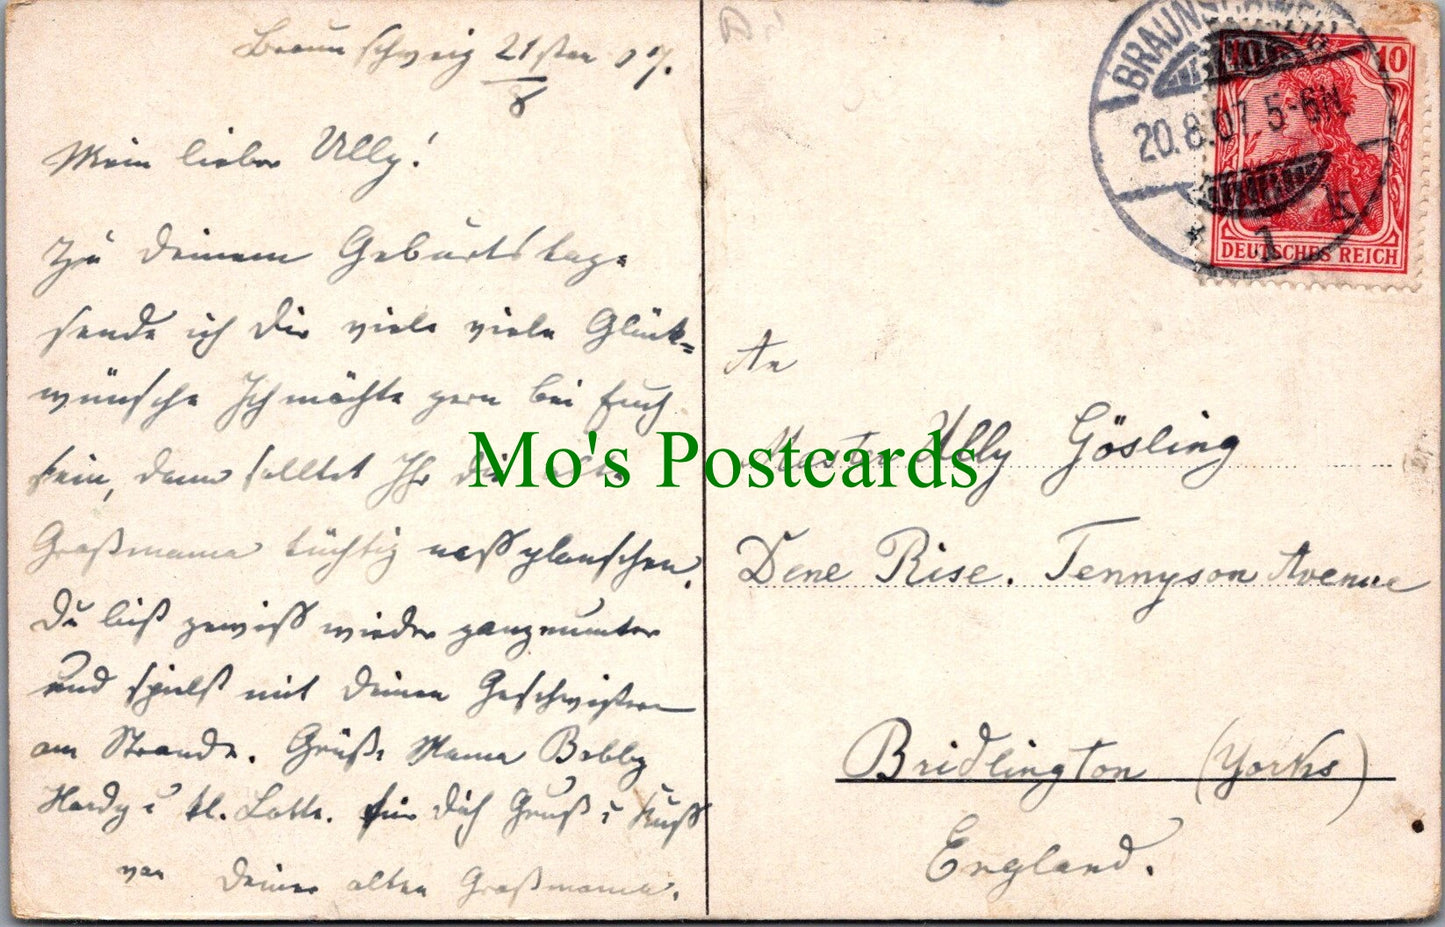 Braunschweig 21sten 07.
8
Mein lieber Ully!
Zu Deinem Geburtstage
sende ich Dir viele viele Glück-
wünsche Ich möchte gern bei Euch
sein, dann solltet Ihr die alte
Großmama tüchtig naß planschen.
Du bist gewiß wieder ganz munter
und spielst mit Deinen Geschwistern
am Strande. Grüße Mama Bobby
Hardy u kl. Lotte. Für Dich Gruß u Kuß
von Deiner alten Großmama.
Mo's Postcards
BRAUNSCHWEIG
20.8.07 5-6N.
* 1 k
10
DEUTSCHES REICH
An
Master Ully Gösling
Dene Rise. Tennyson Avenue
Bridlington (Yorks)
England.